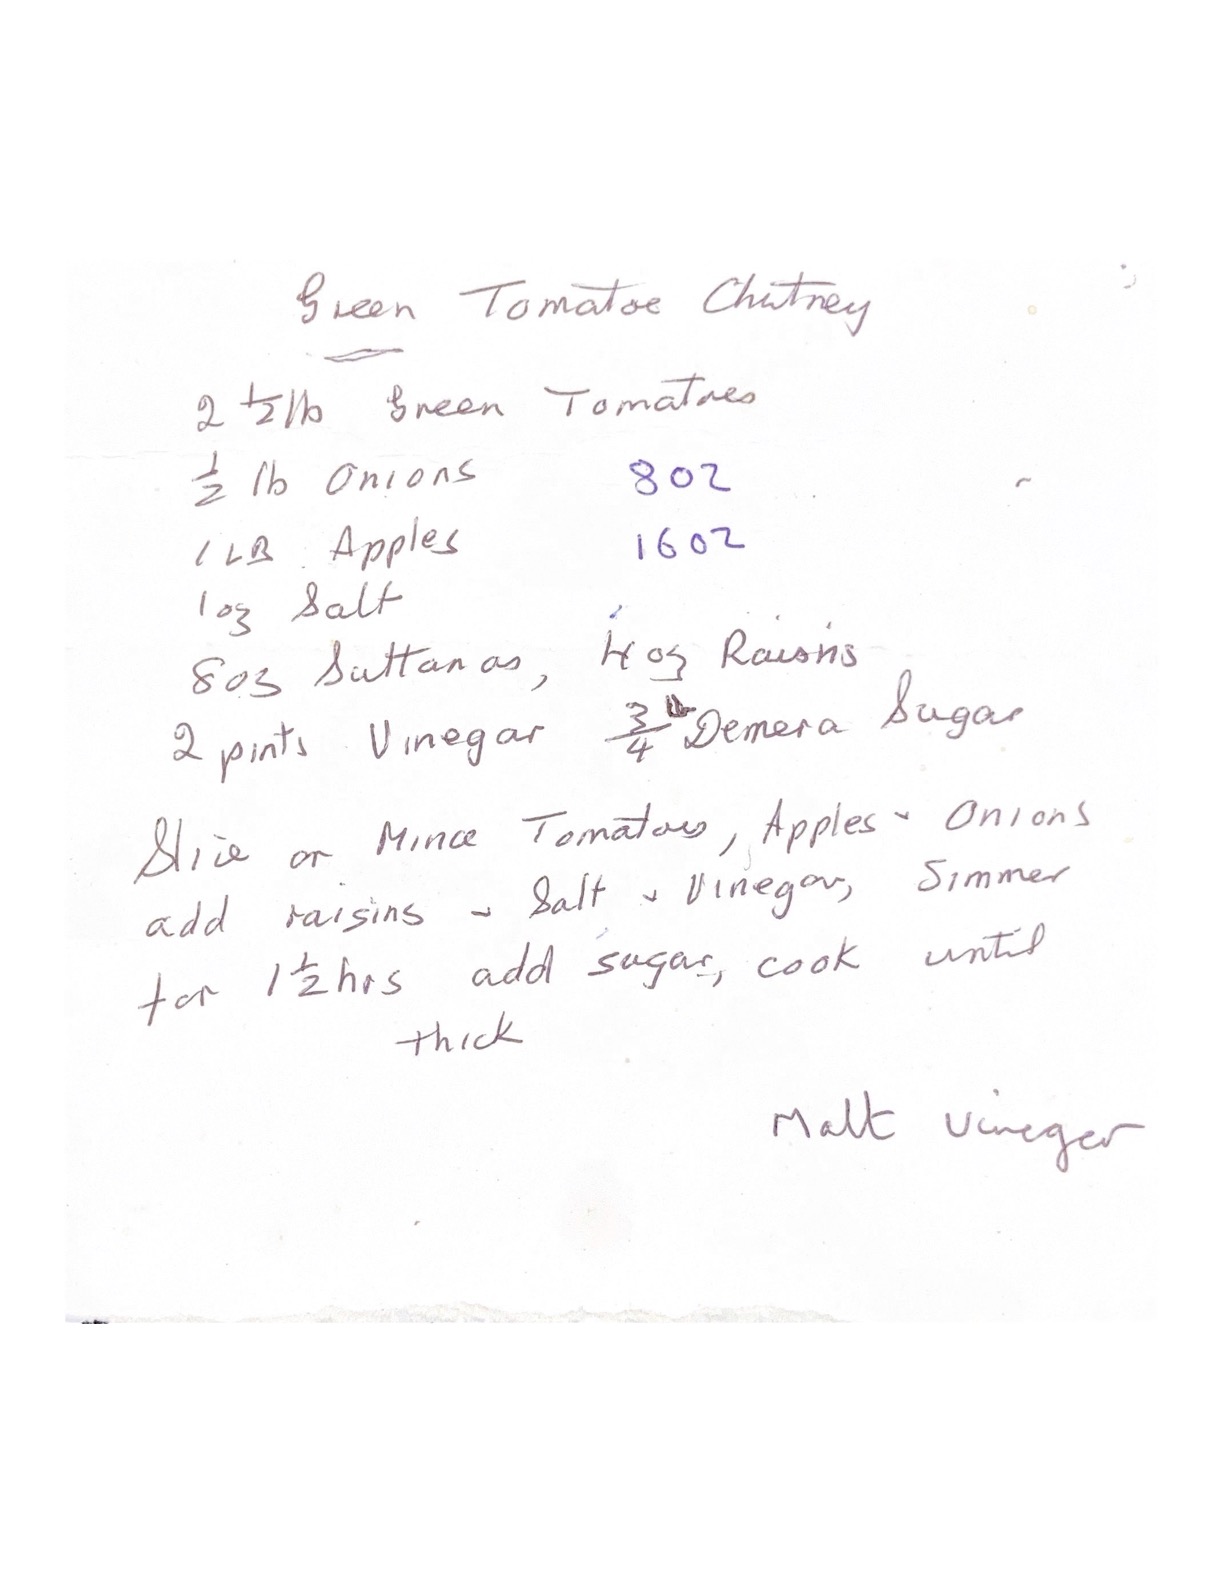 Green Tomatoe Chutney
2 ½ lb Green Tomatoes
½ lb Onions 8oz
1 LB Apples 16oz
1oz Salt
8oz Sultanas, 4oz Raisins
2 pints Vinegar ¾ lb Demera Sugar
Slice or Mince Tomatoes, Apples & Onions
add raisins & Salt & Vinegar, Simmer
for 1½ hrs add sugar, cook until
thick
Malt Vineger